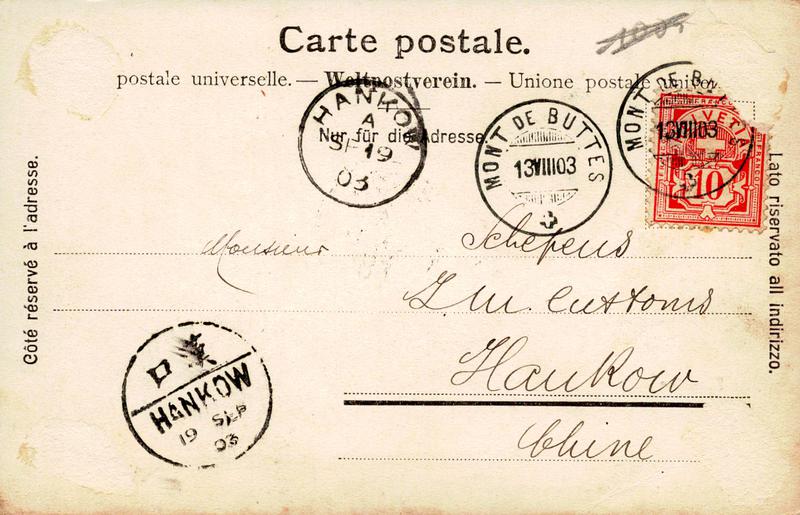 1905
Carte postale.
postale universelle. — Weltpostverein. — Unione postale univer
Nur für die Adresse.
HANKOW
A
SP 19
03
MONT DE BUTTES
13VIII03
MONT DE BUTTES
13VIII03
FRANCO
HELVETIA
10
Côté réservé à l'adresse.
Lato riservato all indirizzo.
Monsieur Schepens
Im Customs
Hankow
Chine
口 漢
HANKOW
19 SEP
03